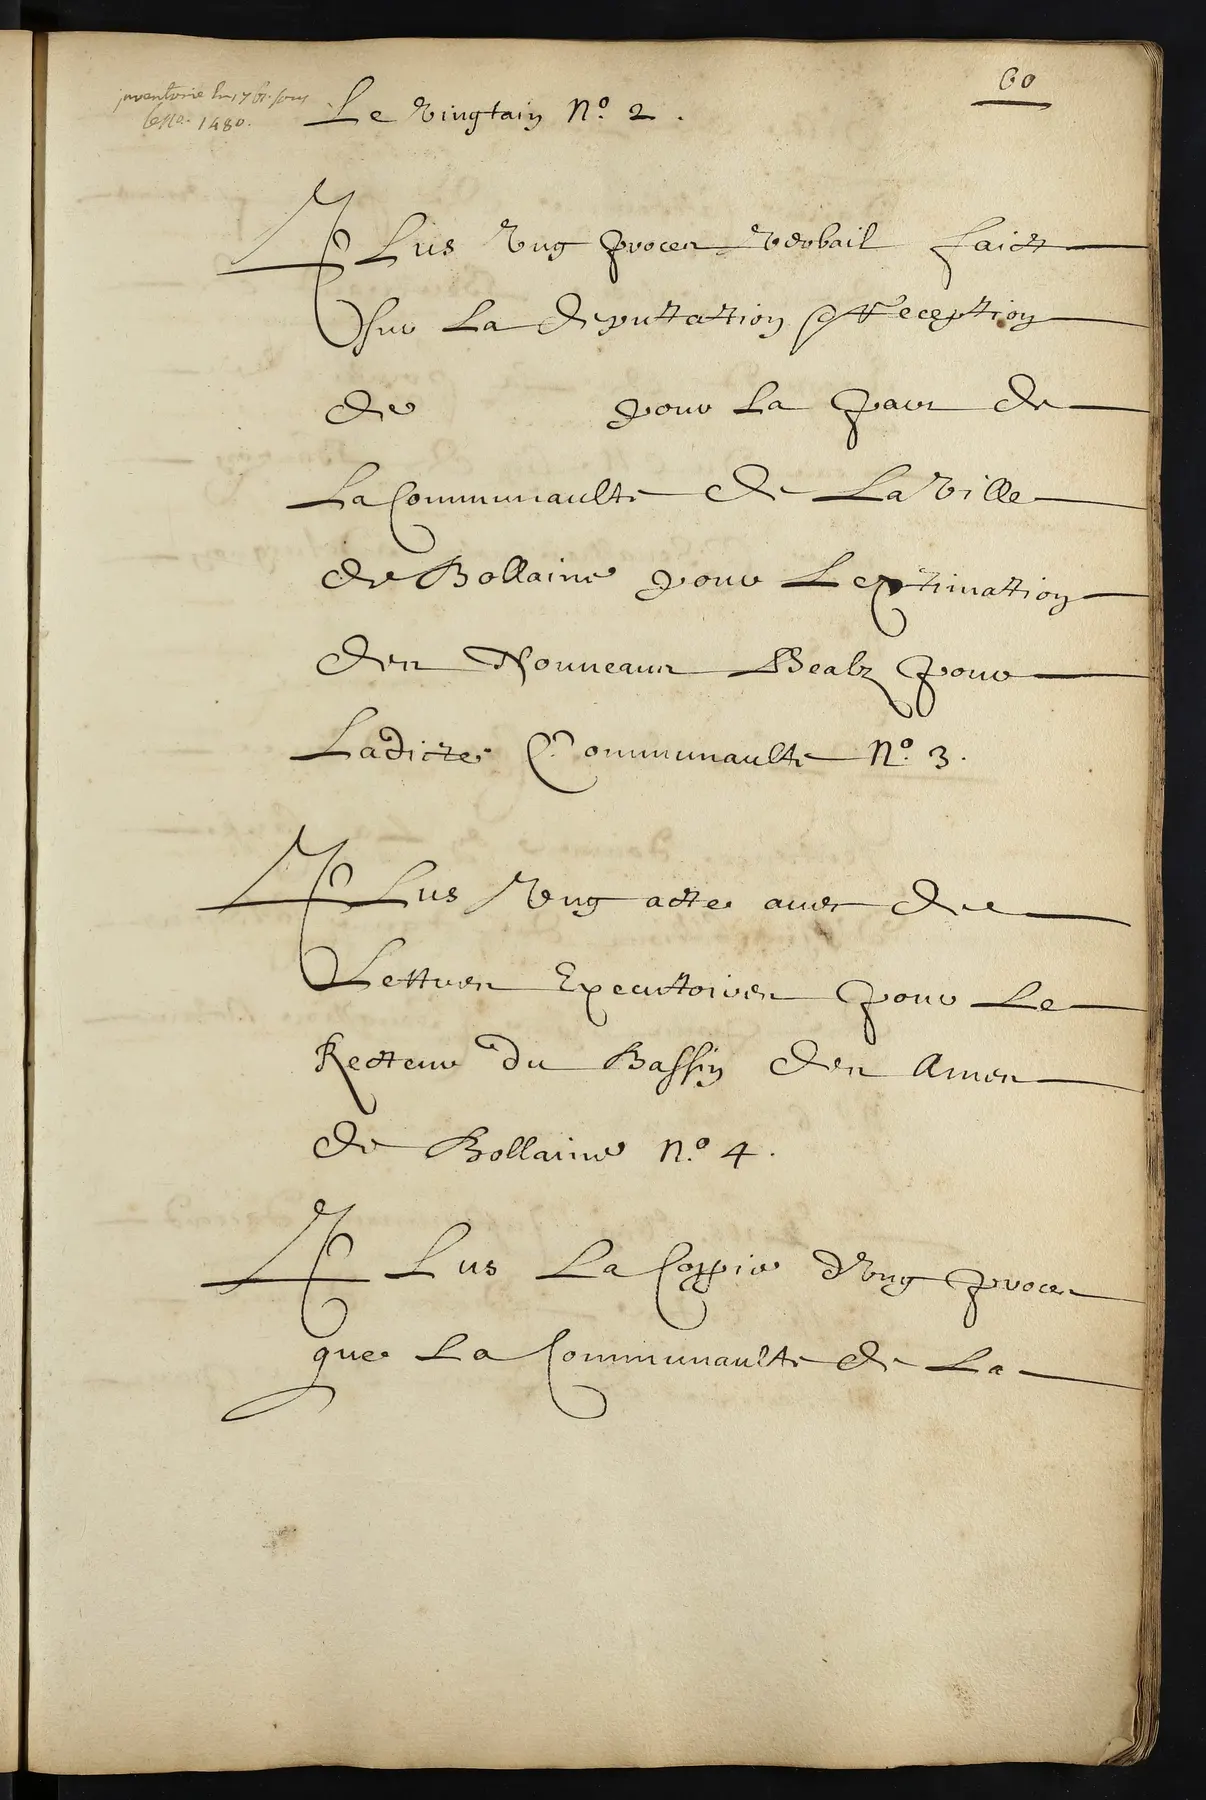 60
inventorié En 1761. sous
le no. 1480.
Le vingtain N.º 2.
Plus Vng proces verbail faict
sur La deputtattion & Reception
de pour La part de
La Communaulte de La Ville
de Bollaine pour L extimattion
des Nouueaux Bealz pour
Ladicte Communaulte N.º 3.
Plus Vng acte auec de
Lettres Executtoires pour Le
Recteur du Bassin des Ames
de Bollaine N.º 4.
Plus La Coppie d Vng proces
que La Communaulte de La